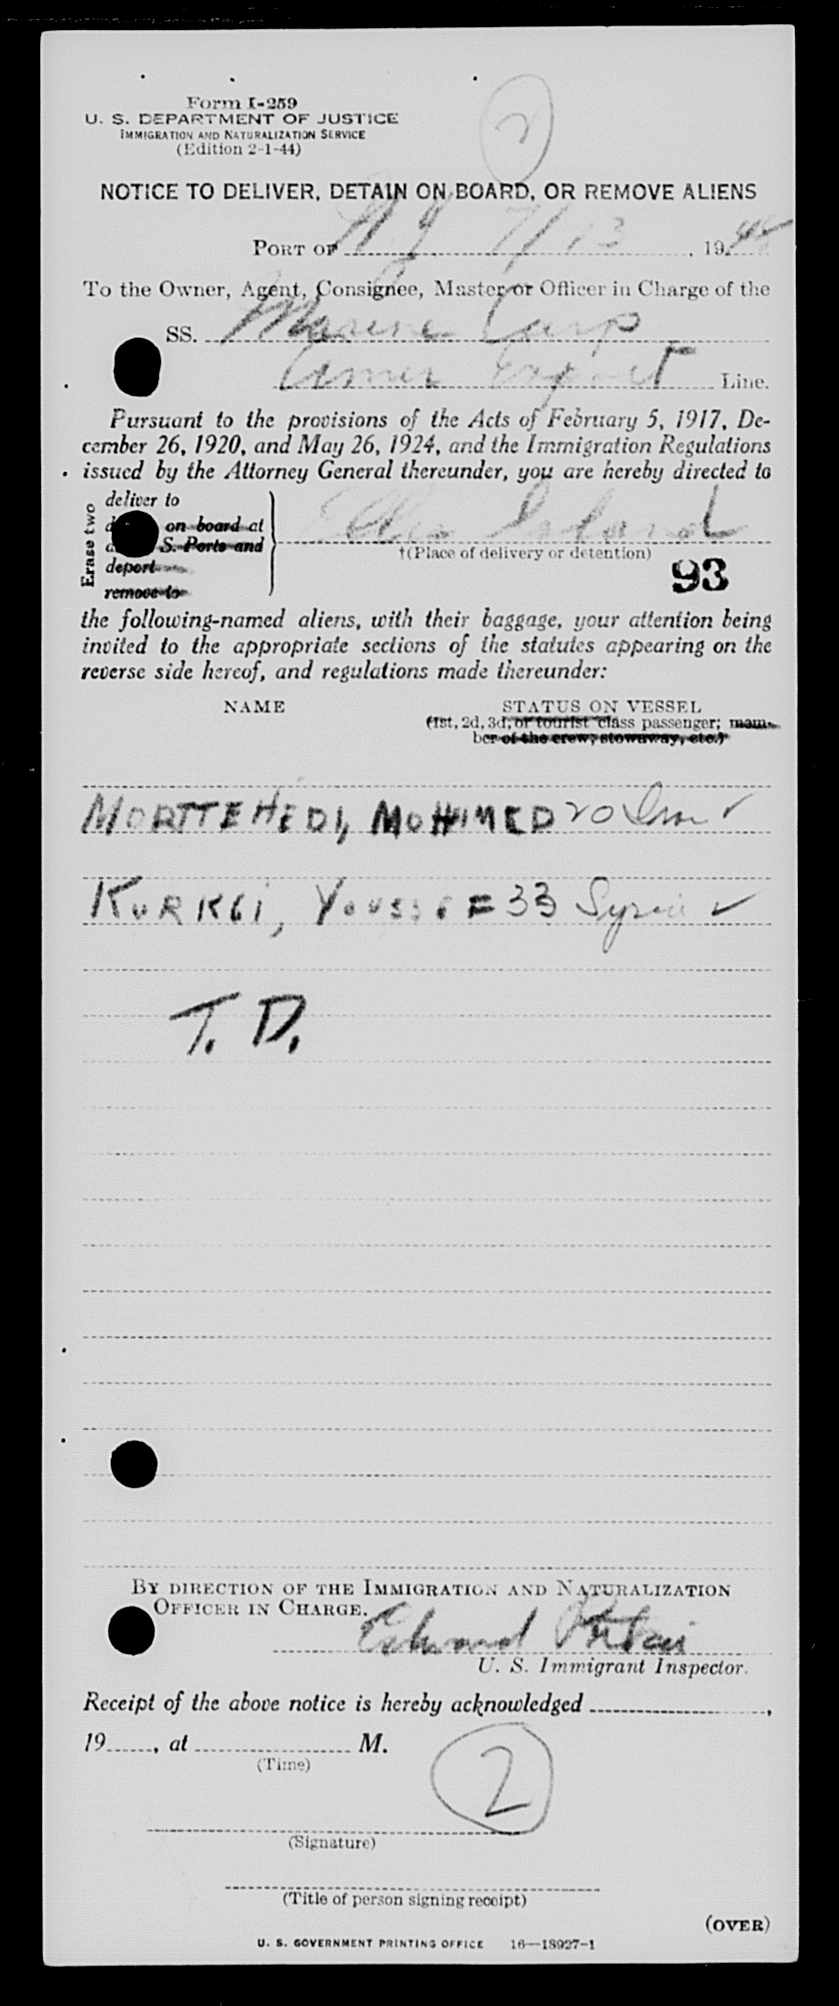 2
Form I-259
U. S. DEPARTMENT OF JUSTICE
IMMIGRATION AND NATURALIZATION SERVICE
(Edition 2-1-44)
NOTICE TO DELIVER, DETAIN ON BOARD, OR REMOVE ALIENS
PORT OF N Y 7/13, 1948
To the Owner, Agent, Consignee, Master or Officer in Charge of the
SS. Marine Carp
Amer Export Line.
Pursuant to the provisions of the Acts of February 5, 1917, De-
cember 26, 1920, and May 26, 1924, and the Immigration Regulations
issued by the Attorney General thereunder, you are hereby directed to
Erase two
deliver to
on board at
S. Ports and
deport
remove to
Ellis Island
†(Place of delivery or detention)
93
the following-named aliens, with their baggage, your attention being
invited to the appropriate sections of the statutes appearing on the
reverse side hereof, and regulations made thereunder:
NAME STATUS ON VESSEL
(1st, 2d, 3d, or tourist class passenger; mem-
ber of the crew, stowaway, etc.)
MORTTEHEDI, MOHHMED 20 Iran ✓
KURKGI, YOUSSEF 33 Syria ✓
T. D.
BY DIRECTION OF THE IMMIGRATION AND NATURALIZATION
OFFICER IN CHARGE.
Edward
U. S. Immigrant Inspector.
Receipt of the above notice is hereby acknowledged ,
19 , at M.
(Time)
2
(Signature)
(Title of person signing receipt)
(OVER)
U. S. GOVERNMENT PRINTING OFFICE 16—18927-1